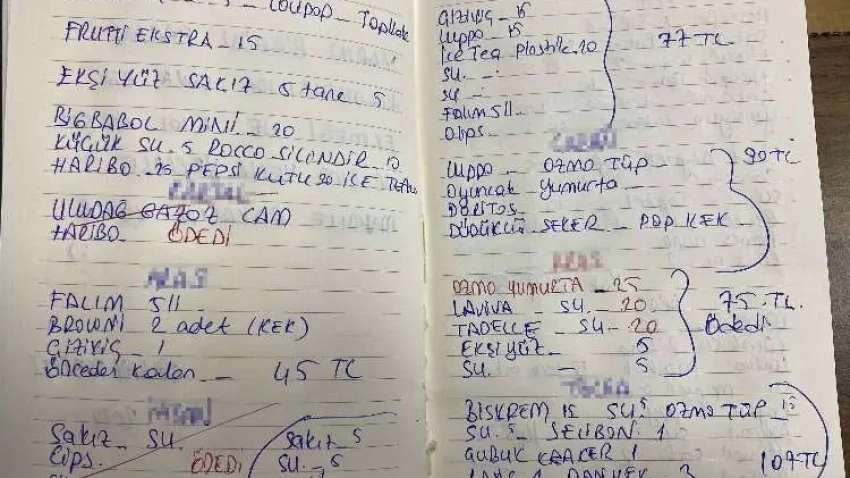 LOLİPOP - Topkek
FRUTTİ EKSTRA - 15
EKŞİ YÜZ SAKIZ 5 tane 5
BİGBABOL MİNİ - 20
KÜÇÜK SU. 5 ROCCO SİLENDİR. 10
HARİBO. 25 PEPSİ KUTU 20 İCE TEA
ULUDAĞ GAZOZ CAM
HARİBO. ÖDEDİ
FALIM 5li
BROWNİ 2 adet (KEK)
ÇİZİVİÇ - 1
Önceden Kalan - 45 TC
Sakız - SU.
Cips. ÖDEDİ
Sakız 5
SU. - 5
ÇİZİVİÇ - 15
Luppo - 15
İce Tea plastik. 20
SU. -
SU -
FALIM 5li.
Cips.
77 TL
Luppo - OZMO TÜP
Oyuncak yumurta -
DORİTOS -
DÜDÜKLÜ ŞEKER - POP KEK -
90 TC
OZMO YUMURTA - 25
LAVİVA - SU. 20
TADELLE - SU - 20
EKŞİ YÜZ - 5
SU. - 5
75 TL.
Ödedi
BİSKREM 15 SU 5 OZMO TÜP 15
SU. 5 - 1
ÇUBUK KRAKER 1
107 TL